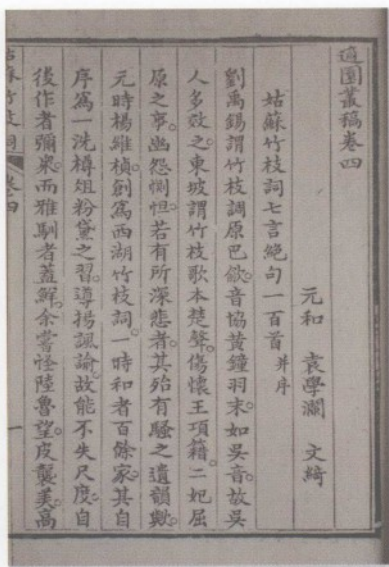 適園叢稿卷四
元和 袁學瀾 文綺
姑蘇竹枝詞七言絕句一百首 并序
劉禹錫謂竹枝調原巴歈音協黃鐘羽末如吳音故吳
人多效之東坡謂竹枝歌本楚聲傷懷王項籍二妃屈
原之事幽怨惻怛若有所深悲者其殆有騷之遺韻歟
元時楊維楨創為西湖竹枝詞一時和者百餘家其自
序為一洗樽俎粉黛之習導揚諷諭故能不失尺度自
後作者彌衆而雅馴者蓋鮮余嘗怪陸魯望皮襲美高
姑蘇竹枝詞 卷四 一